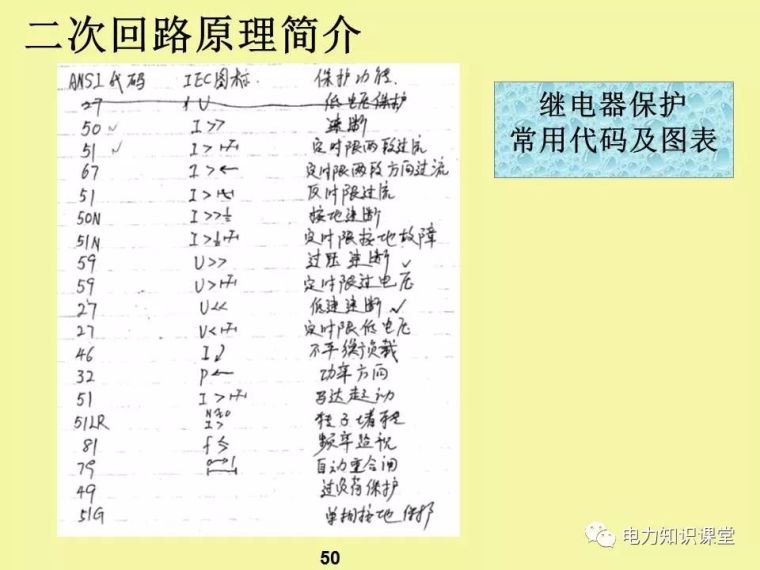 二次回路原理简介
继电器保护
常用代码及图表
ANSI代码 IEC图标 保护功能
27 U 低电压保护
50 I>> 速断
51 I> 定时限两段过流
67 I>← 定时限两段方向过流
51 I> 反时限过流
50N I>> 接地速断
51N I> 定时限接地故障
59 U>> 过压速断
59 U> 定时限过电压
27 U<< 低速速断
27 U< 定时限低电压
46 I 不平衡负载
32 P← 功率方向
51 I> 马达起动
51LR I> 转子堵转
81 f≤ 频率监视
79 自动重合闸
49 过负荷保护
51G 单相接地保护
50
电力知识课堂